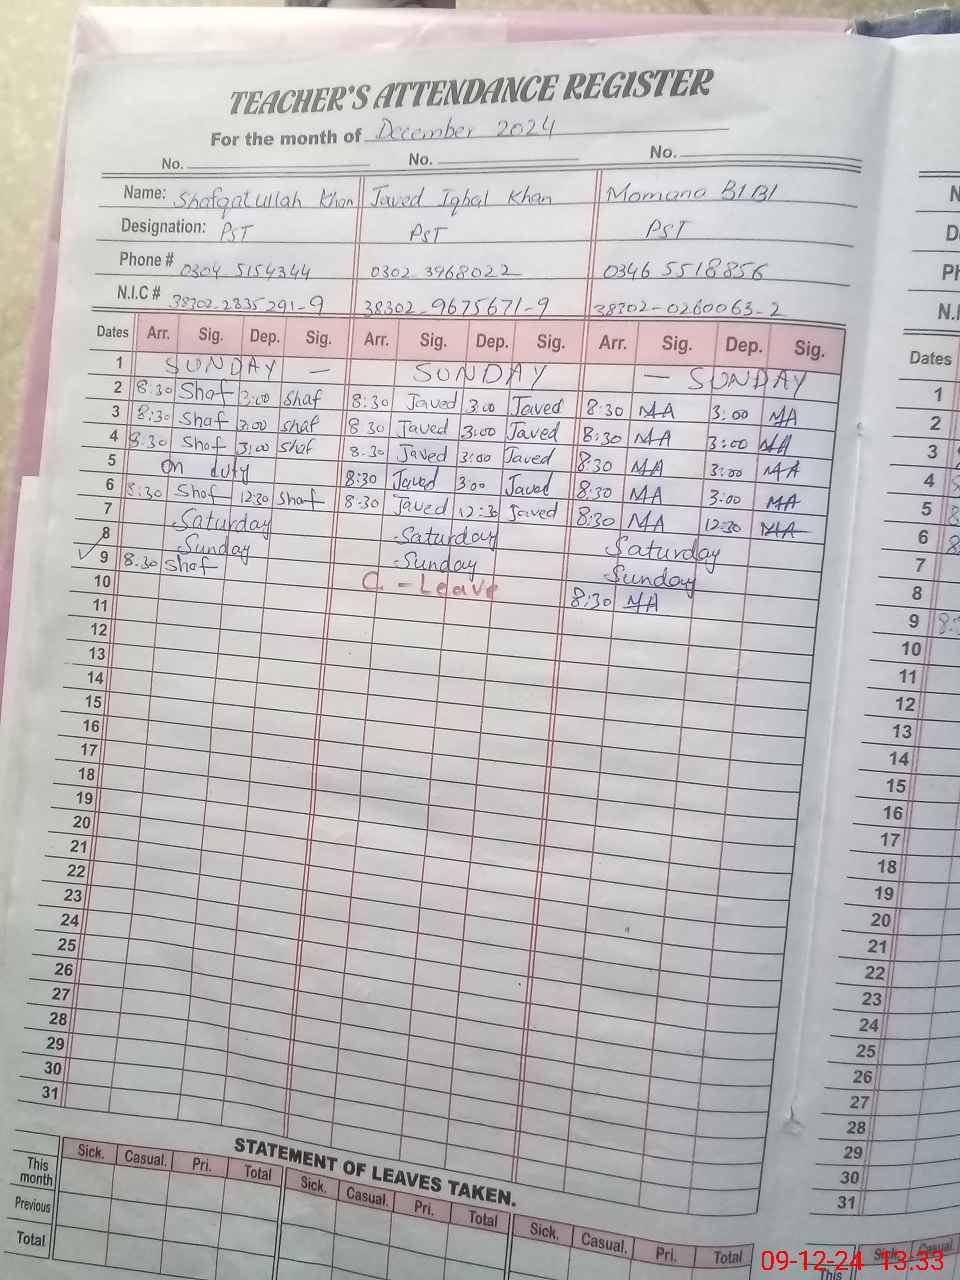 TEACHER'S ATTENDANCE REGISTER
For the month of December 2024
No. No. No.
Name: Shafqatullah Khan Javed Iqbal Khan Momana BIBI
Designation: PST PST PST
Phone # 0304 5154344 0302 3968022 0346 5518856
N.I.C # 38302-2835291-9 38302-9675671-9 38302-0260063-2
Dates Arr. Sig. Dep. Sig. Arr. Sig. Dep. Sig. Arr. Sig. Dep. Sig.
1 SUNDAY — SUNDAY — SUNDAY
2 8:30 Shaf 3:00 Shaf 8:30 Javed 3:00 Javed 8:30 MA 3:00 MA
3 8:30 Shaf 3:00 Shaf 8:30 Javed 3:00 Javed 8:30 MA 3:00 MA
4 8:30 Shaf 3:00 Shaf 8:30 Javed 3:00 Javed 8:30 MA 3:00 MA
5 On duty 8:30 Javed 3:00 Javed 8:30 MA 3:00 MA
6 8:30 Shaf 12:30 Shaf 8:30 Javed 12:30 Javed 8:30 MA 12:30 MA
7 Saturday Saturday Saturday
8 Sunday Sunday Sunday
9 8:30 Shaf C. - Leave 8:30 MA
10
11
12
13
14
15
16
17
18
19
20
21
22
23
24
25
26
27
28
29
30
31
STATEMENT OF LEAVES TAKEN.
Sick. Casual. Pri. Total Sick. Casual. Pri. Total Sick. Casual. Pri. Total
This month
Previous
Total
Dates
1
2
3
4
5
6
7
8
9
10
11
12
13
14
15
16
17
18
19
20
21
22
23
24
25
26
27
28
29
30
31
Sick. Casual.
This
09-12-24 13:33